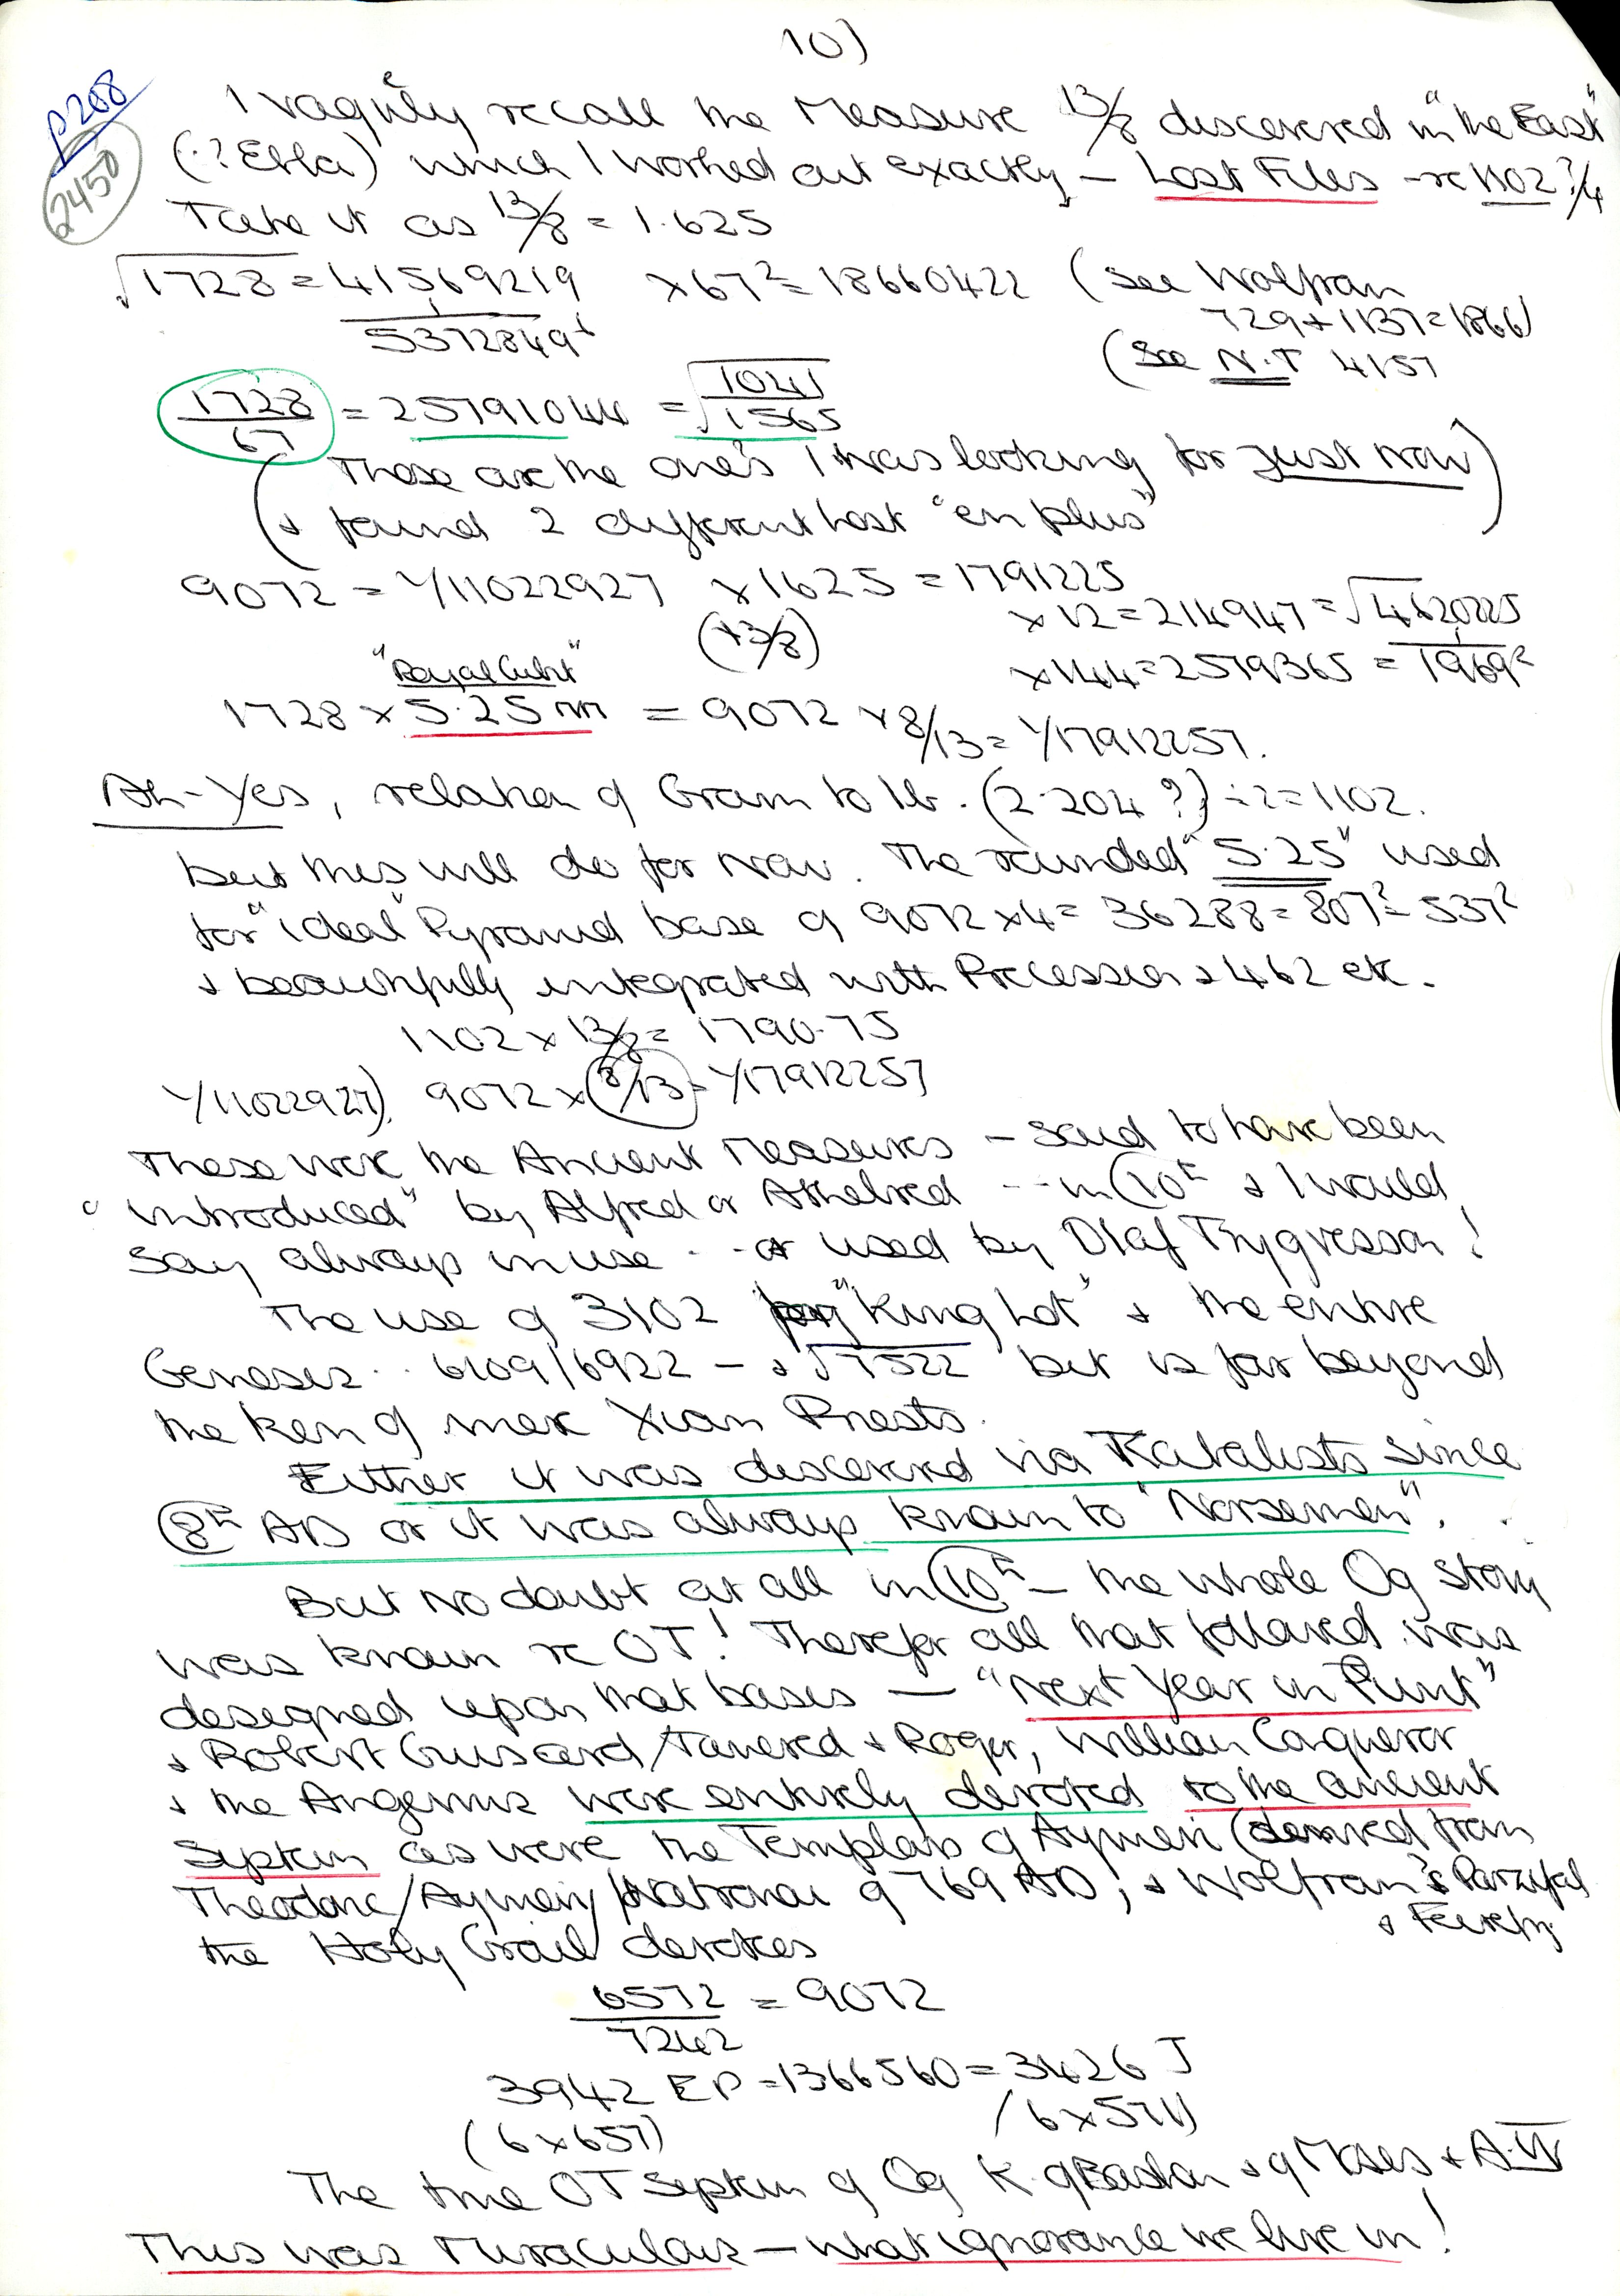 10)
p208
2450
I vaguely recall the Measure 13/8 discovered in "the East"
(?Ebla) which I worked out exactly – Lost Files – re 1102 ?/4
Take it as 13/8 = 1.625
√1728 = 41569219 × 67² = 18660422 (See Wolfram
5372849² 729 + 1137 = 1866)
(See N.T 4157
1728/67 = 25791044 = √1041/1565
(These are the one's I was looking for Just now)
+ found 2 different host "en plus"
9072 = 1/11022927 × 1625 = 1791225
(13/8)
× 12 = 214947 = √4620225
× 144 = 2579365 = 1969²
"Royal Cubit"
1728 × 5.25 m = 9072 × 8/13 = 1/17912257.
Ah – Yes, relation of Gram to lb. (2.204 ?) ÷ 2 = 1102.
but this will do for now. The rounded "5.25" used
for "ideal" Pyramid base of 9072 × 4 = 36288 = 807² = 537²
+ beautifully integrated with Precession + 462 etc.
1102 × 13/8 = 1790.75
1/11022927). 9072 × (8/13) = 1/17912257
These were the Ancient Measures – said to have been
"introduced" by Alfred or Athelred -- in 10th + I would
say always in use -- or used by Olaf Trygvesson!
The use of 3102 "King Lot" + the entire
Geneses .. 6109/6922 – + √7522 but is far beyond
the ken of mere Xian Priests.
Either it was discovered via Kabalists since
8th AD or it was always known to "Norsemen".
But no doubt at all in 10th – the whole Og story
was known re OT! Therefor all that followed was
designed upon that basis — "Next Year in Punt"
+ Robert Guiscard/Tancred + Roger, William Conqueror
+ the Angevins were entirely devoted to the ancient
System as were the Templars of Aymeri (derived from
Theodoric/Aymeri/Natronai of 769 AD; + Wolfram's Parzifal
+ Feirefiz
the Holy Grail devotees
6572/7242 = 9072
3942 EP = 1366560 = 3426 J
(6×657) (6×571)
The true OT System of Og K. of Bashan + of Moses + A.W
This was Miraculous – what ignorance we live in!